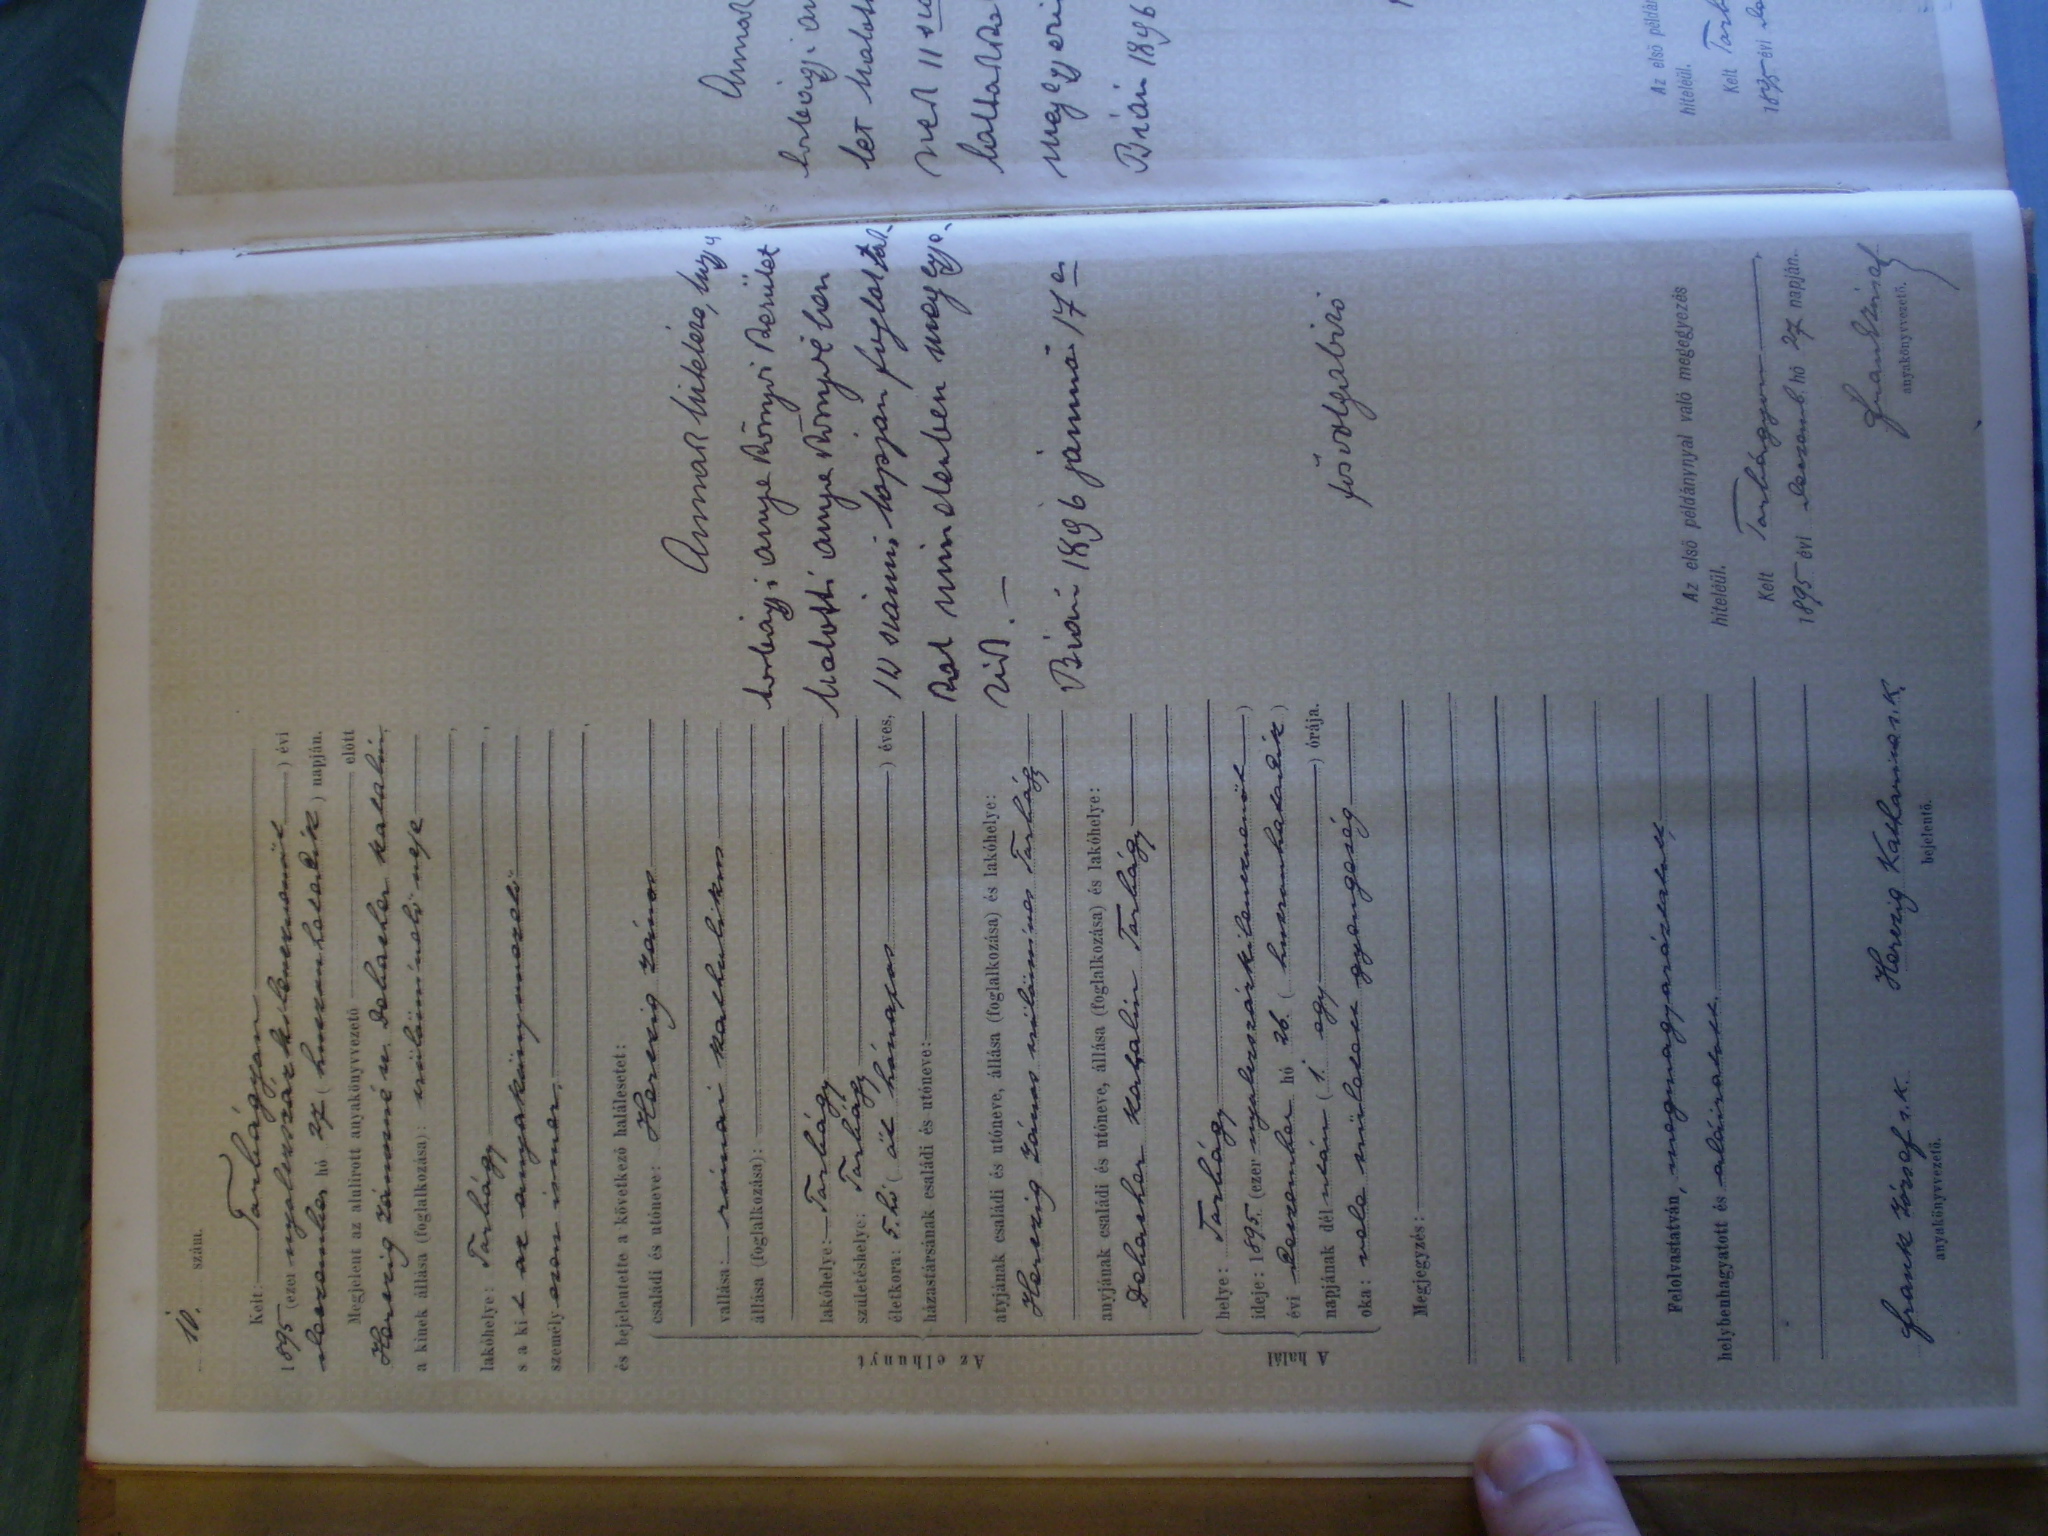 10. szám.
Kelt: Torbágyon
1895 (ezer nyolczszázkilenczvenöt) évi
deczember hó 27 (huszonhetedik) napján.
Megjelent az alulirott anyakönyvvezető előtt
Herczig Jánosné u. Dohacker katalin,
a kinek állása (foglalkozása): szőlőmívelő neje
lakóhelye: Torbágy,
s a ki t az anyakönyvvezető
személyesen ismer,
és bejelentette a következő halálesetet:
Az elhunyt
családi és utóneve: Herczig János
vallása: római katholikus
állása (foglalkozása):
lakóhelye: Torbágy
születéshelye: Torbágy
életkora: 5. hó (öt hónapos) éves,
házastársának családi és utóneve:
atyjának családi és utóneve, állása (foglalkozása) és lakóhelye:
Herczig János szőlőmíves Torbágy
anyjának családi és utóneve, állása (foglalkozása) és lakóhelye:
Dohacker katalin Torbágy
A halál
helye: Torbágy
ideje: 1895. (ezer nyolczszázkilenczvenöt)
évi Deczember hó 26. (huszonhatodik)
napjának dél után (1. egy) órája.
oka: vele született gyengeség
Megjegyzés:
Felolvastatván, megmagyaráztatott,
helybenhagyatott és aláiratott.
Frank József s.k. Herczig Katharina s.k.
anyakönyvvezető. bejelentő.
Annak hitelére, hogy
torbágyi anyakönyvi kerület
halotti anyakönyvében
10 számú lapján foglaltak
kal mindenben megegye
zik. —
Bián 1896 január 17 én
főszolgabíró
Az első példánynyal való megegyezés
hiteléül.
Kelt Torbágyon,
1895 évi deczemb. hó 27 napján.
Frank József
anyakönyvvezető.
Annak
torbágyi an
let halott
nek 11 sz
laltakkal
megyezi
Bián 1896
Az első példán
hiteléül.
Kelt Torb
1895 évi de